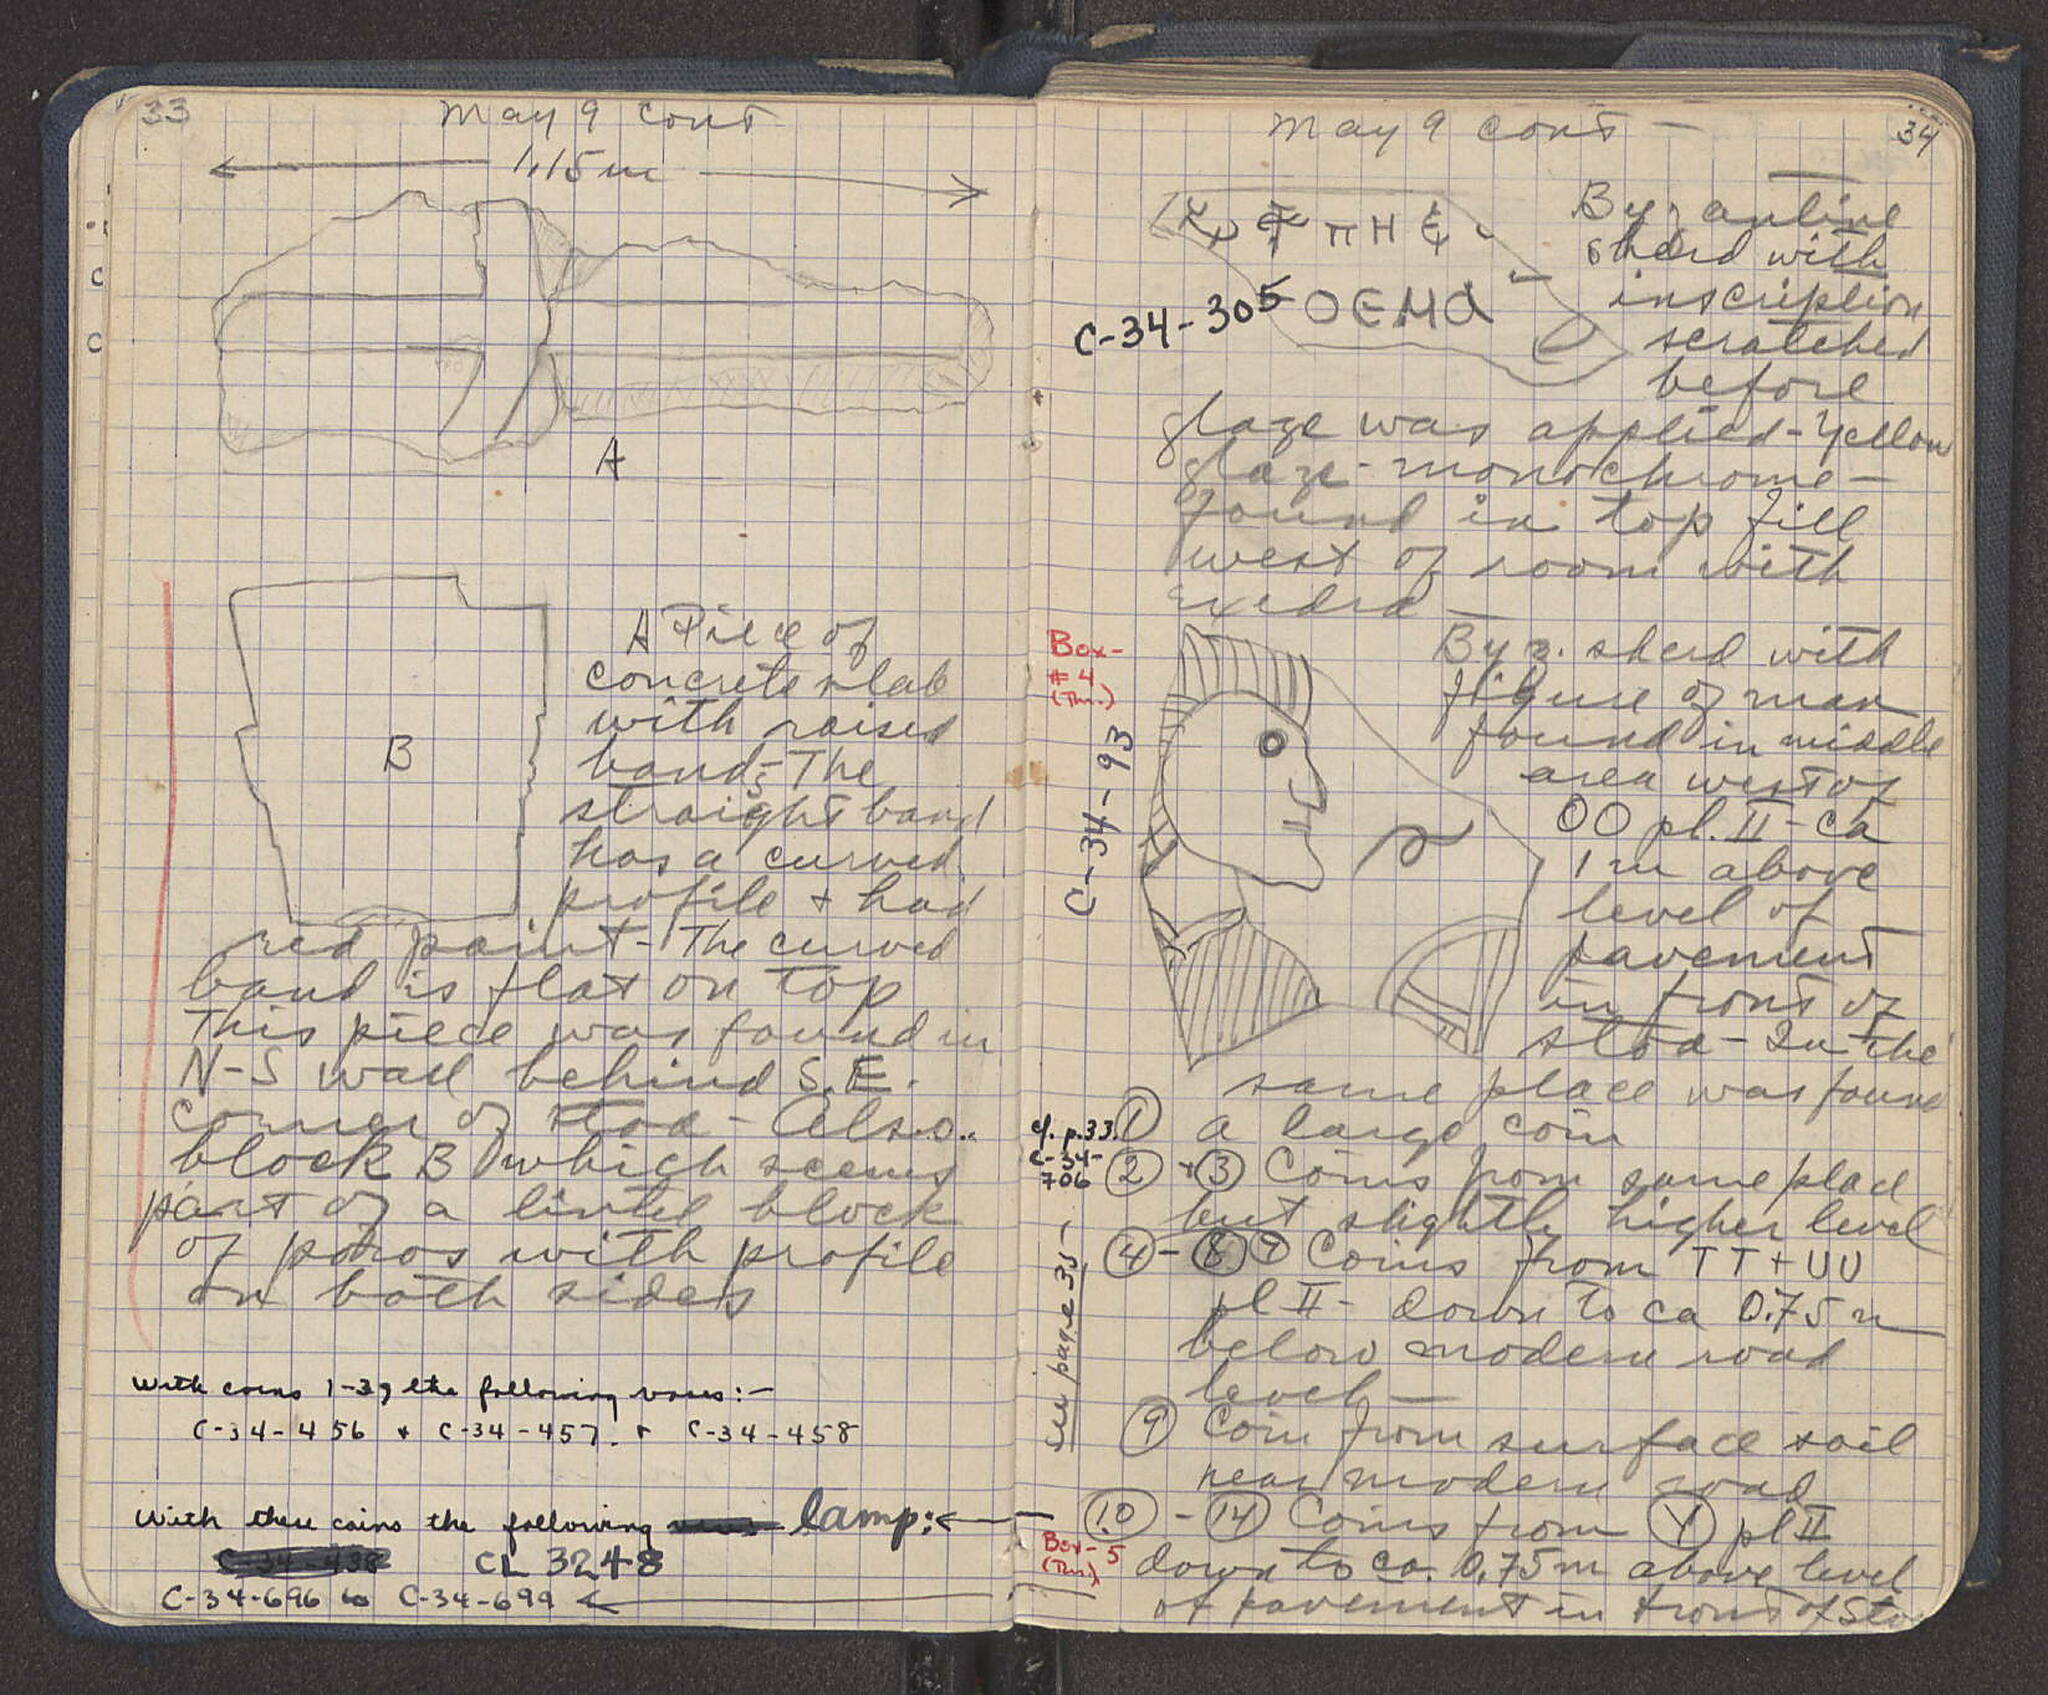 33
May 9 cont
1,15 m
A
B
A Piece of
concrete slab
with raised
band; - The
straight band
has a curved
profile + had
red paint - The curved
band is flat on top
This piece was found in
N-S wall behind S.E.
corner of stoa - Also
block B which seems
part of a lintel block
of poros with profile
on both sides
With coins 1-3, the following vases:-
C-34-456 + C-34-457. + C-34-458
With these coins the following lamp:
CL 3248
C-34-696 to C-34-699
34
May 9 cont -
ΟΕΜα
C-34-305
Byzantine
sherd with
inscription
scratched
before
glaze was applied - Yellow
glaze - monochrome -
found in top fill
west of room with
exedra -
Box-
#4
(Thr.)
C-34-93
Byz. sherd with
figure of man
found in middle
area west of
OO pl. II - ca
1 m above
level of
pavement
in front of
stoa - In the
same place was found
① a large coin
cf. p.33.
C-34-
706
② + ③ Coins from same place
but slightly higher level
④ - ⑧ ⑦ Coins from TT + UU
pl II - down to ca 0.75 m
below modern road
level -
see page 35
⑨ Coin from surface soil
near modern road
⑩ - ⑭ Coins from Ⓨ pl II
Box-5
(Thr.)
down to ca. 0,75m above level
of pavement in front of Stoa